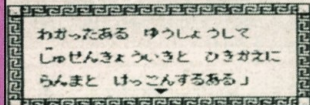 わかったある ゆうしょうして
じゅせんきょういきと ひきかえに
らんまと けっこんするある」